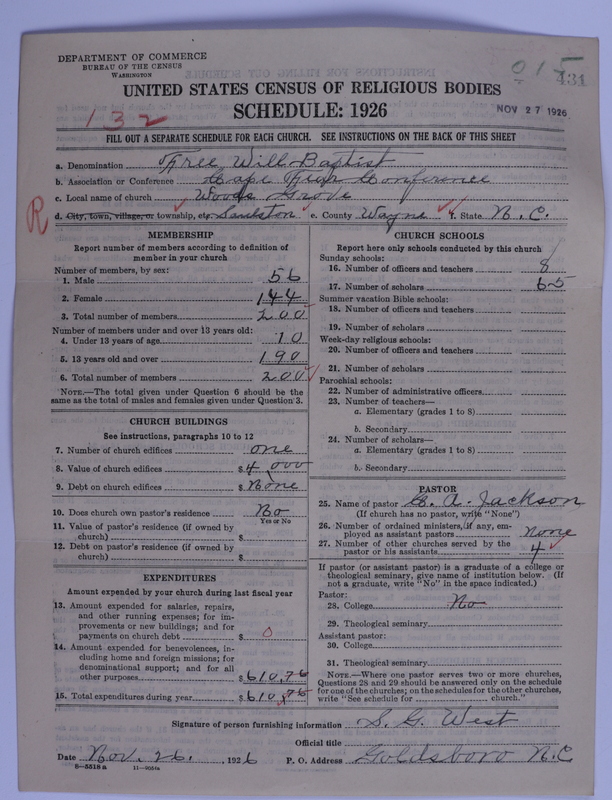 DEPARTMENT OF COMMERCE
BUREAU OF THE CENSUS
WASHINGTON
015
431
UNITED STATES CENSUS OF RELIGIOUS BODIES
SCHEDULE: 1926
NOV 27 1926
132
FILL OUT A SEPARATE SCHEDULE FOR EACH CHURCH. SEE INSTRUCTIONS ON THE BACK OF THIS SHEET
a. Denomination Free Will Baptist
b. Association or Conference Cape Fear Conference
c. Local name of church Woods Grove
R
d. City, town, village, or township, etc. Saulston e. County Wayne f. State N.C.
MEMBERSHIP
Report number of members according to definition of
member in your church
Number of members, by sex:
1. Male 56
2. Female 144
3. Total number of members 200
Number of members under and over 13 years old:
4. Under 13 years of age 10
5. 13 years old and over 190
6. Total number of members 200
NOTE.—The total given under Question 6 should be
same as the total of males and females given under Question 3.
CHURCH BUILDINGS
See instructions, paragraphs 10 to 12
7. Number of church edifices one
8. Value of church edifices $4,000
9. Debt on church edifices $None
10. Does church own pastor's residence No
Yes or No
11. Value of pastor's residence (if owned by
church) $
12. Debt on pastor's residence (if owned by
church) $
EXPENDITURES
Amount expended by your church during last fiscal year
13. Amount expended for salaries, repairs,
and other running expenses; for im-
provements or new buildings; and for
payments on church debt $ 0
14. Amount expended for benevolences, in-
cluding home and foreign missions; for
denominational support; and for all
other purposes $610.76
15. Total expenditures during year $610.76
CHURCH SCHOOLS
Report here only schools conducted by this church
Sunday schools:
16. Number of officers and teachers 8
17. Number of scholars 65
Summer vacation Bible schools:
18. Number of officers and teachers
19. Number of scholars
Week-day religious schools:
20. Number of officers and teachers
21. Number of scholars
Parochial schools:
22. Number of administrative officers
23. Number of teachers—
a. Elementary (grades 1 to 8)
b. Secondary
24. Number of scholars—
a. Elementary (grades 1 to 8)
b. Secondary
PASTOR
25. Name of pastor A. Jackson
(If church has no pastor, write "None")
26. Number of ordained ministers, if any, em-
ployed as assistant pastors none
27. Number of other churches served by the
pastor or his assistants 4
If pastor (or assistant pastor) is a graduate of a college or
theological seminary, give name of institution below. (If
not a graduate, write "No" in the space indicated.)
Pastor:
28. College No
29. Theological seminary
Assistant pastor:
30. College
31. Theological seminary
NOTE.—Where one pastor serves two or more churches,
Questions 28 and 29 should be answered only on the schedule
for one of the churches; on the schedules for the other churches,
write "See schedule for church."
Signature of person furnishing information S. G. West
Official title
Date Nov. 26. 1926 P. O. Address Goldsboro N.C
8—5518a